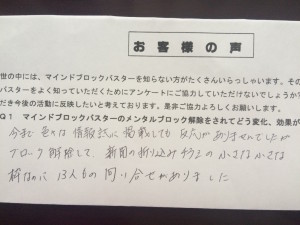 お客様の声
世の中には、マインドブロックバスターを知らない方がたくさんいらっしゃいます。その
バスターをよく知っていただくためにアンケートにご協力していただけないでしょうか?
だき今後の活動に反映したいと考えております。是非ご協力よろしくお願いします。
Q1 マインドブロックバスターのメンタルブロック解除をされてどう変化、効果が
今まで色々な情報誌に掲載しても反応がありませんでしたが
ブロック解除して、新聞の折り込みチラシの小さな小さな
枠なのに13人もの問い合せがありました